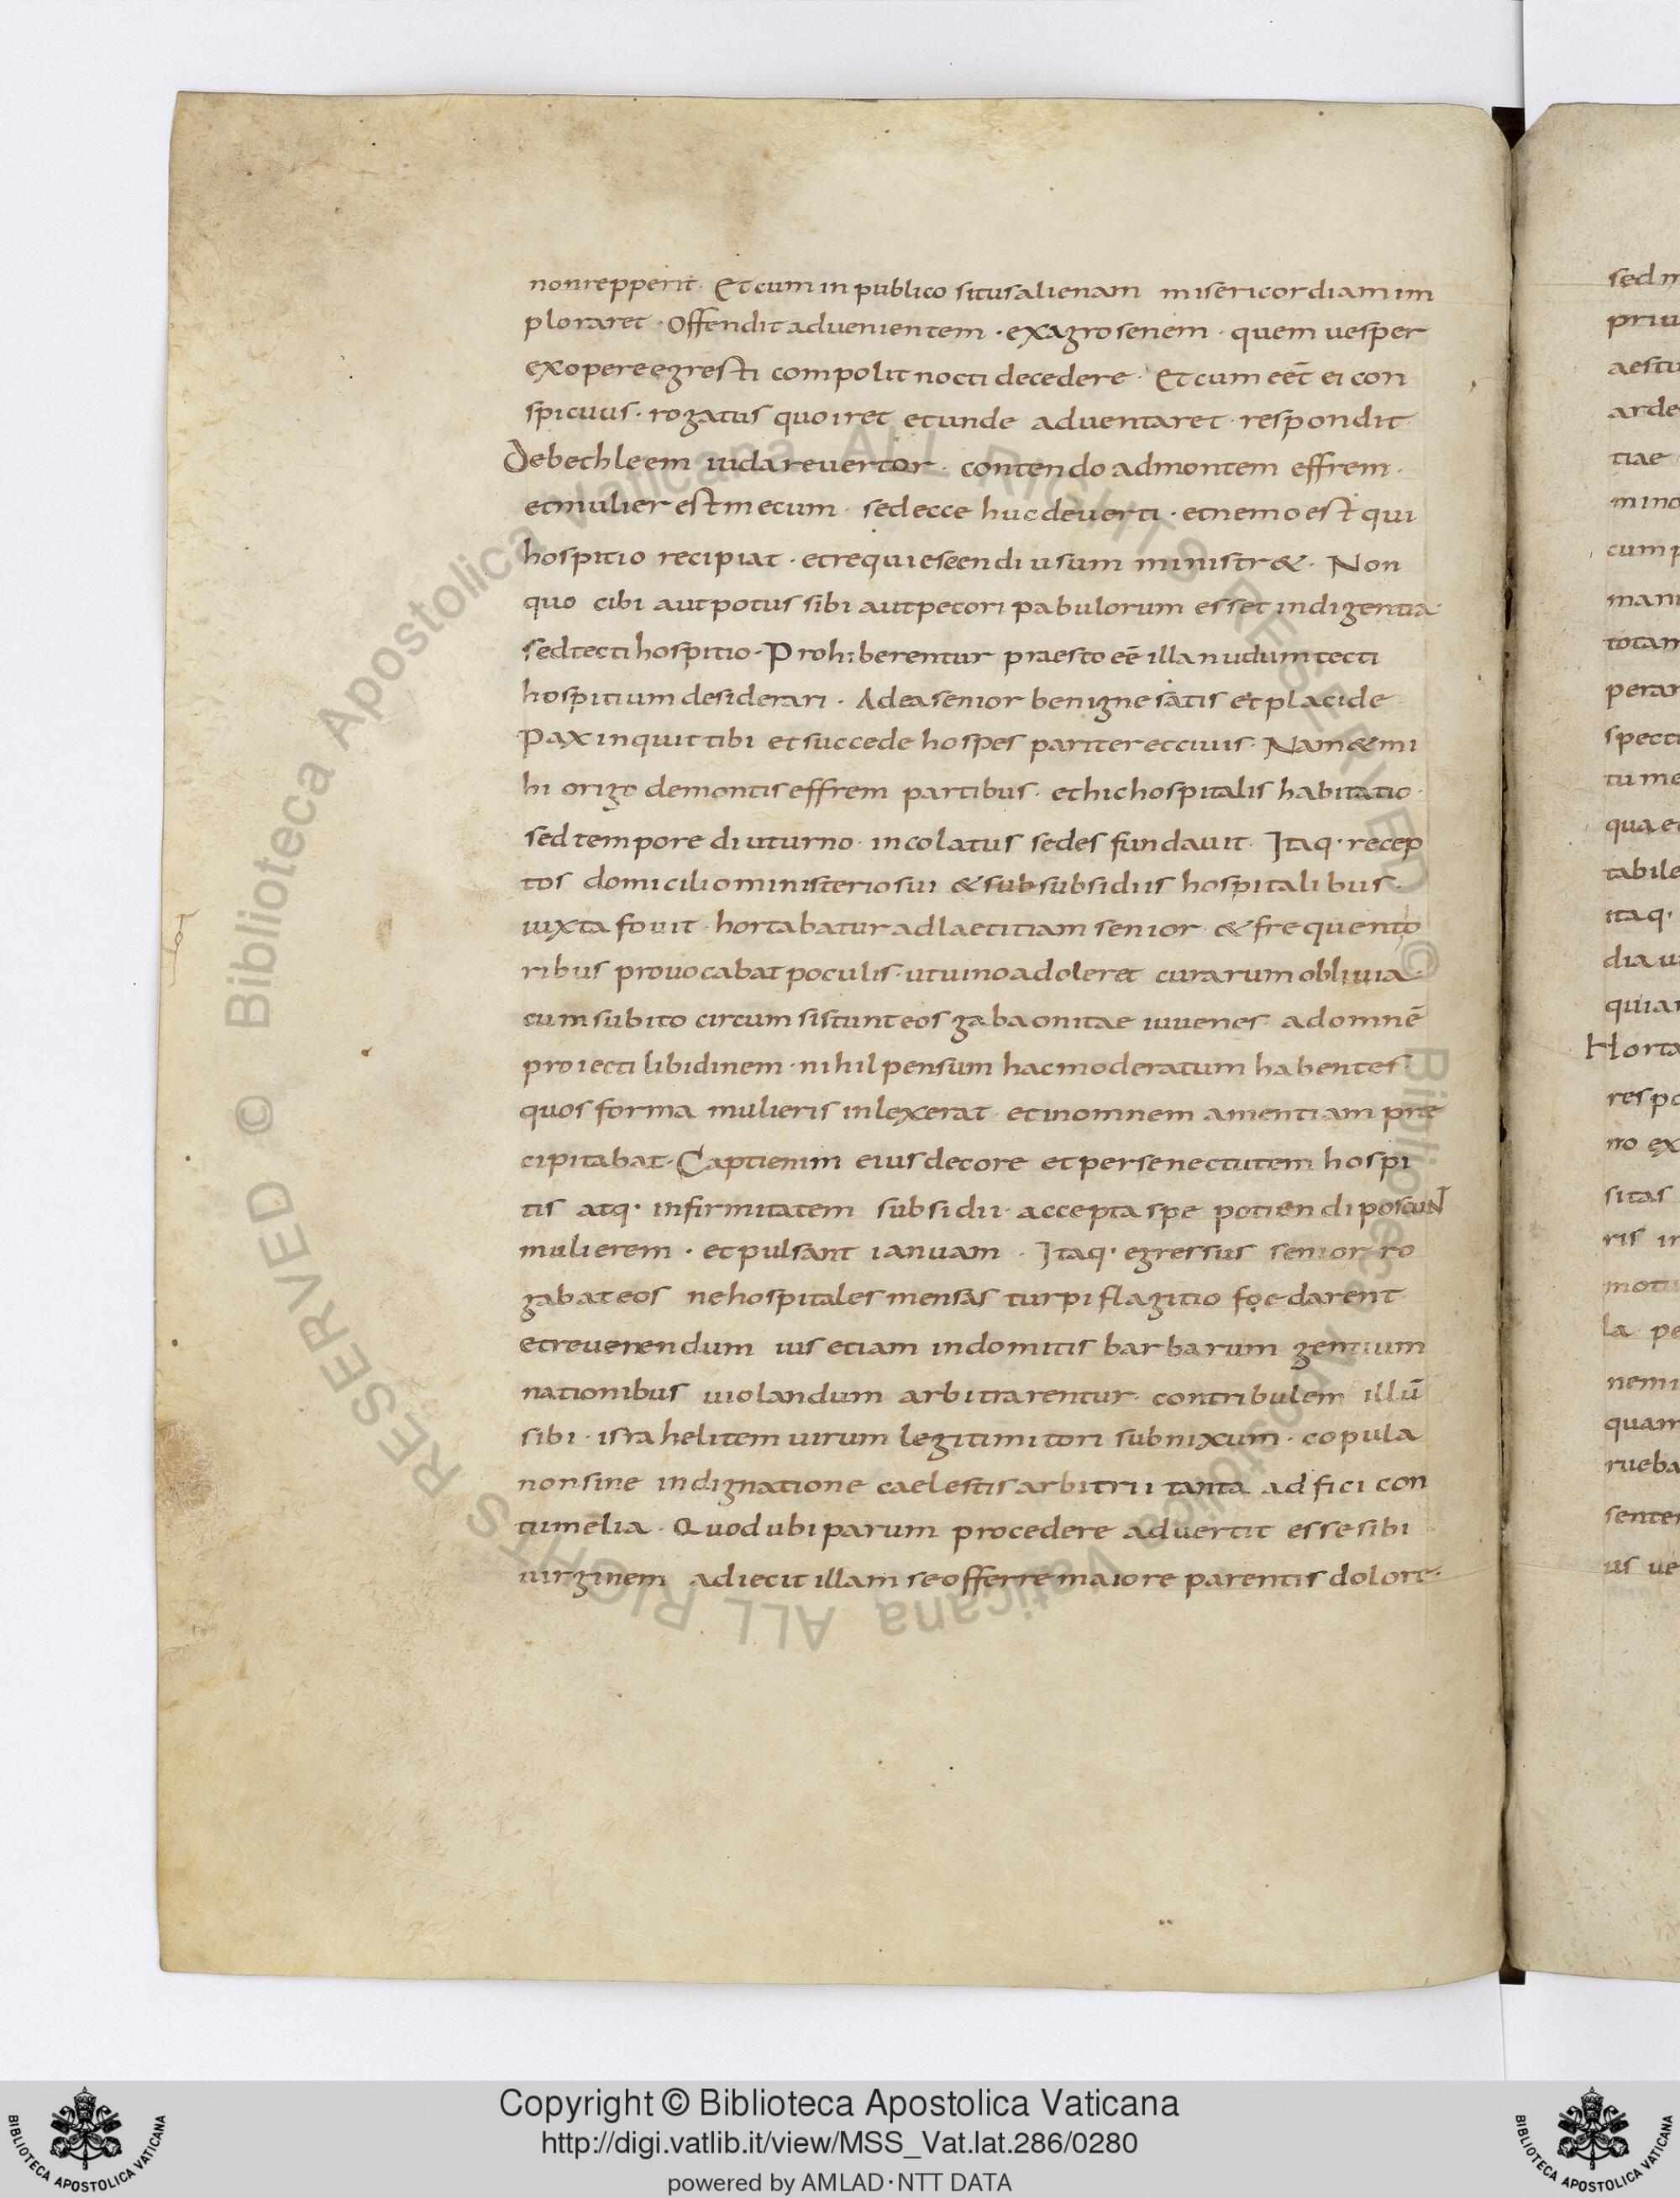 nonrepperit. Et cum in publico situs alienam misericordiam im
ploraret. Offendit aduenientem. ex agro senem. quem uesper
ex opere egresti compolit nocti decedere. Et cum eēt ei con
spicuus. rogatus quo iret et unde aduentaret. respondit
De bethleem iuda reuertor. contendo ad montem effrem.
et mulier est mecum. sed ecce huc deuerti. et nemo est qui
hospitio recipiat. et requiescendi usum ministr&. Non
quo cibi aut potus sibi aut pecori pabulorum esset indigentia
sed tecti hospitio. Prohiberentur praesto eē illa nudum tecti
hospitium desiderari. Ad ea senior benigne satis et placide
Pax inquit tibi et succede hospes pariter et ciuis. Nam & mi
hi origo de montis effrem partibus. et hic hospitalis habitatio.
sed tempore diuturno. incolatus sedes fundauit. Itaq. recep
tos domicilio ministerio sui & sub subsidiis hospitalibus.
iuxta fouit. hortabatur ad laetitiam senior. & frequento
ribus prouocabat poculis. ut uino adoleret curarum obliuia.
cum subito circumsistunt eos gabaonitae iuuenes. ad omnē
proiecti libidinem. nihil pensum hac moderatum habentes
quos forma mulieris inlexerat. et in omnem amentiam pre
cipitabat. Capti enim eius decore et per senectutem hospi
tis atq. infirmitatem subsidii. accepta spe potiendi poscuNT
mulierem. et pulsant ianuam. Itaq. egressus senior ro
gabat eos ne hospitales mensas turpi flagitio foedarent
et reuerendum ius etiam indomitis barbarum gentium
nationibus uiolandum arbitrarentur. contribulem illū
sibi. israhelitem uirum legitimi tori subnixum. copula
non sine indignatione caelestis arbitrii tanta adfici con
tumelia. Quod ubi parum procedere aduertit esse sibi
uirginem adiecit illam se offerre maiore parentis dolore.
sed m
priu
aestu
arde
tiae
mino
cum p
manu
totam
peran
specti
tu me
qua et
tabile
itaq.
dia u
quiar
Horta
respo
no ex
sitas
ris in
motu
la pe
nemi
quam
rueba
senten
us ue
Copyright © Biblioteca Apostolica Vaticana
http://digi.vatlib.it/view/MSS_Vat.lat.286/0280
powered by AMLAD·NTT DATA